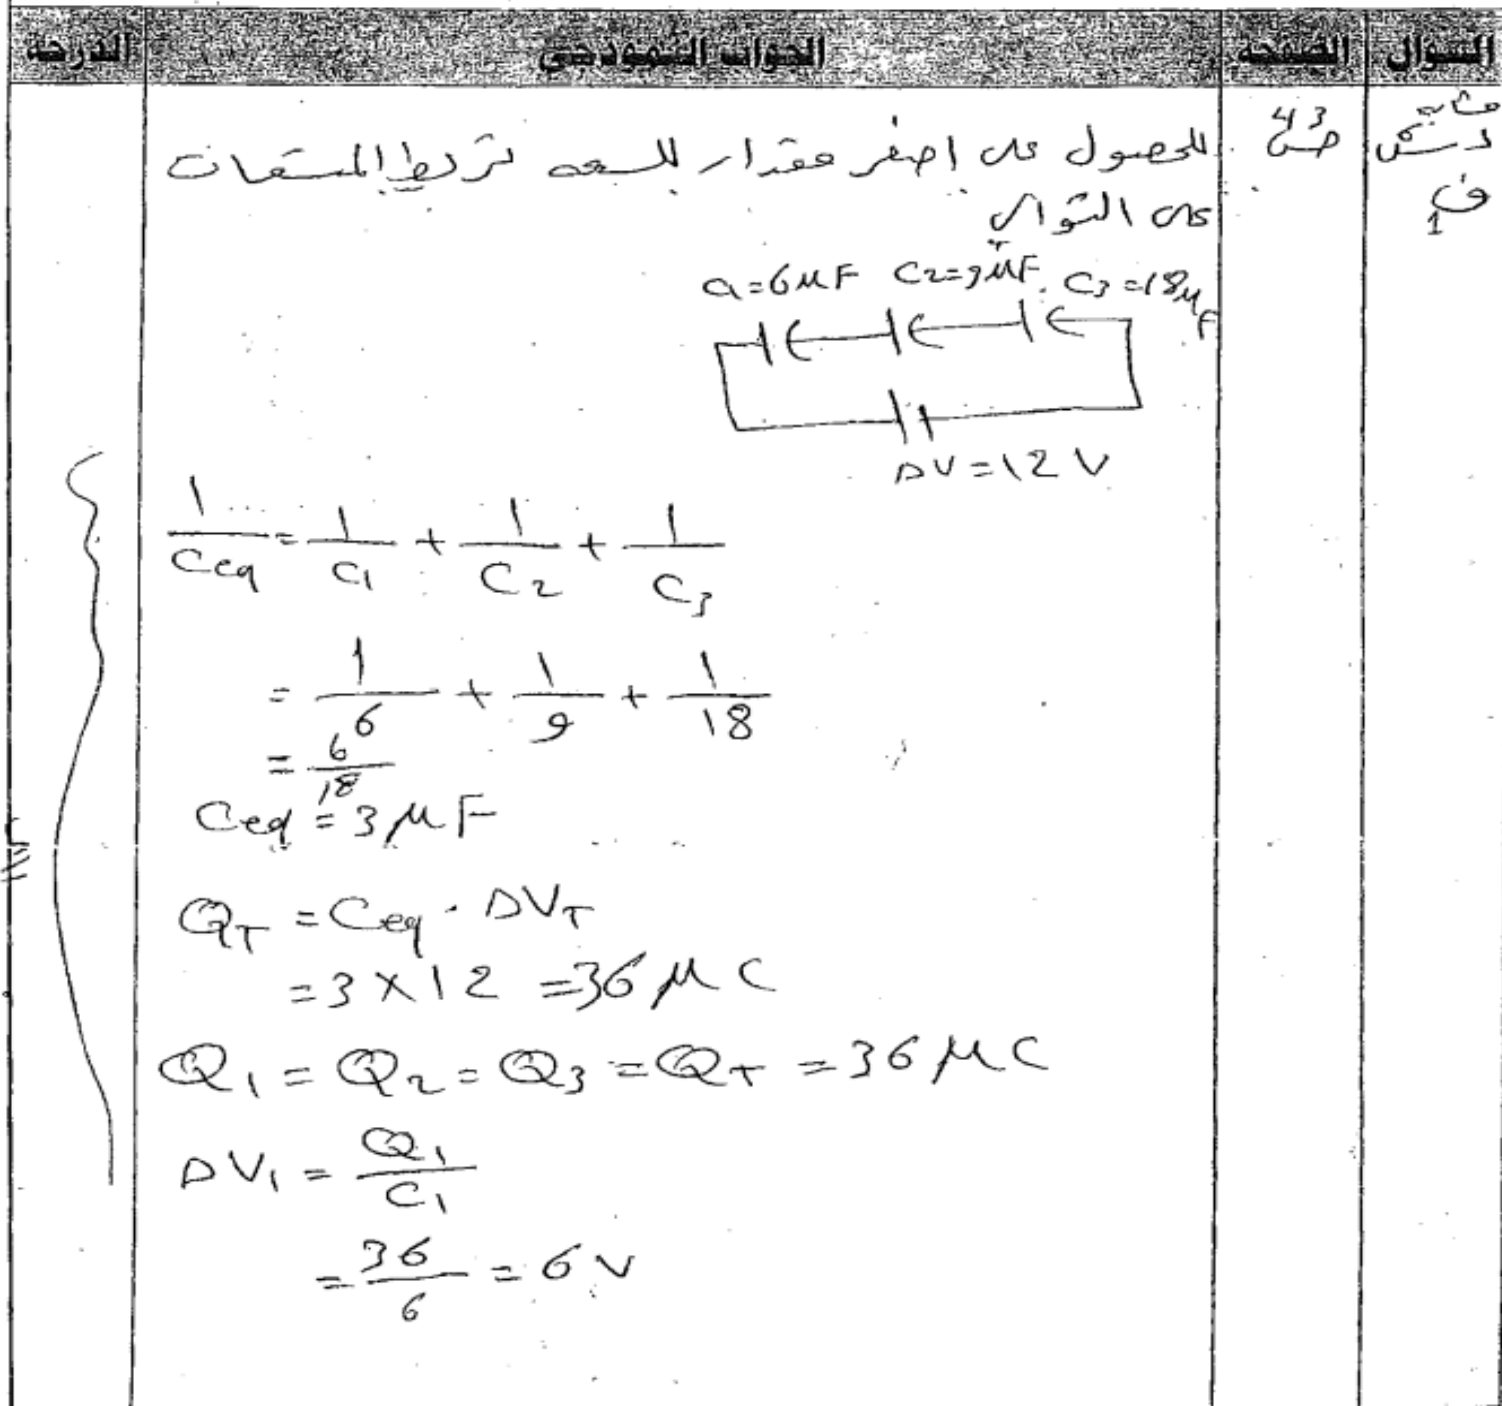 السؤال الصفحة الجواب النموذجي الدرجة
ص 43
ف 1
للحصول على اصغر مقدار للسعه تربط المتسعات
على التوالي
C1=6μF C2=9μF. C3=18μF
ΔV=12V
1/Ceq = 1/C1 + 1/C2 + 1/C3
= 1/6 + 1/9 + 1/18
= 6/18
Ceq = 3μF
QT = Ceq . ΔVT
= 3 X 12 = 36 μC
Q1 = Q2 = Q3 = QT = 36 μC
ΔV1 = Q1/C1
= 36/6 = 6V